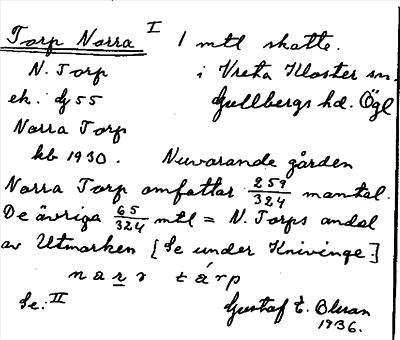 Torp Norra I 1 mtl skatte.
N. Torp i Vreta Kloster sn.
ek. dj 55 Gullbergs hd. Ögl
Norra Torp
kb 1930. Nuvarande gården
Norra Torp omfattar 259/324 mantal.
De övriga 65/324 mtl = N. Torps andel
av Utmarken [Se under Knivinge.]
narr tárp
Se: II Gustaf E. Olsson
1936.